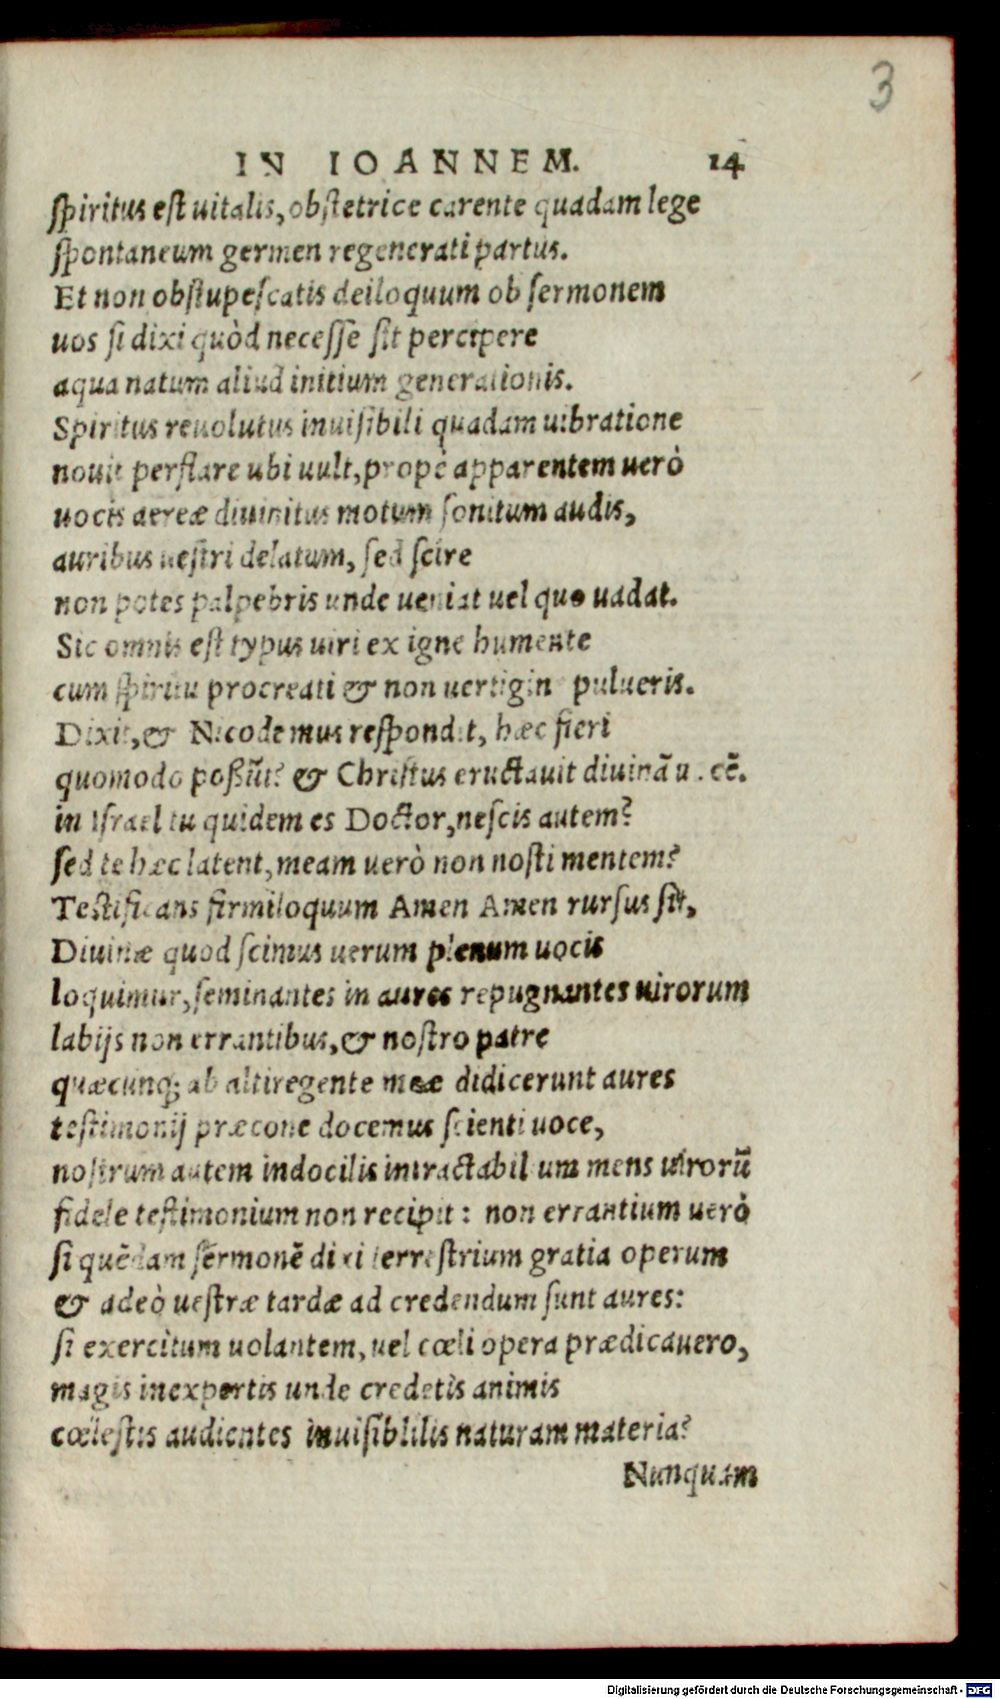 3
IN IOANNEM. 14
ſpiritus eſt uitalis, obſtetrice carente quadam lege
ſpontaneum germen regenerati partus.
Et non obſtupeſcatis deiloquum ob ſermonem
uos ſi dixi quòd neceſſe ſit percipere
aqua natum aliud initium generationis.
Spiritus reuolutus inuiſibili quadam uibratione
nouit perflare ubi uult, propè apparentem uerò
uocis aereæ diuinitus motum ſonitum audis,
auribus ueſtri delatum, ſed ſcire
non potes palpebris unde ueniat uel quo uadat.
Sic omnis eſt typus uiri ex igne humente
cum ſpiritu procreati & non uertigin pulueris.
Dixit, & Nicodemus reſpondit, hæc fieri
quomodo poßũt? & Chriſtus eructauit diuinã u.cẽ.
in Iſrael tu quidem es Doctor, neſcis autem?
ſed te hæc latent, meam uerò non noſti mentem?
Teſtificans firmiloquum Amen Amen rurſus ſit,
Diuinæ quod ſcimus uerum plenum uocis
loquimur, ſeminantes in aures repugnantes uirorum
labijs non errantibus, & noſtro patre
quæcunq; ab altiregente meæ didicerunt aures
teſtimonij præcone docemus ſcienti uoce,
noſtrum autem indocilis intractabilium mens uirorũ
fidele teſtimonium non recipit: non errantium uerò
ſi quẽdam ſermonẽ dixi terreſtrium gratia operum
& adeò ueſtræ tardæ ad credendum ſunt aures:
ſi exercitum uolantem, uel cœli opera prædicauero,
magis inexpertis unde credetis animis
cœleſtis audientes inuiſiblilis naturam materia?
Nunquam
Digitalisierung gefördert durch die Deutsche Forschungsgemeinschaft - DFG